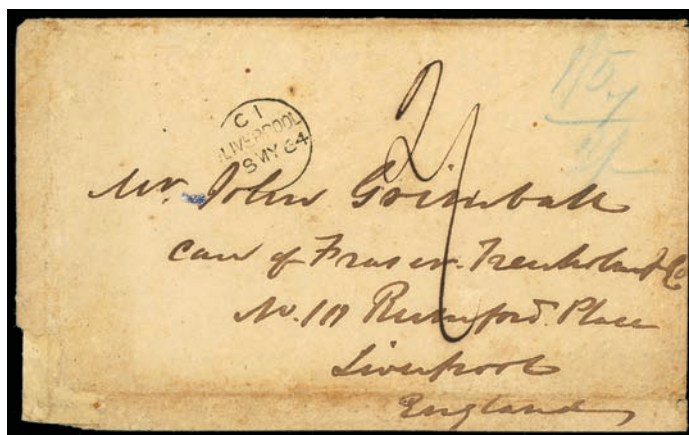 C 1
LIVERPOOL
8 MY 64
2/
Mr. John Grimball
care of Fraser. Trenholm & Co
No. 10 Rumford. Place
Liverpool
England